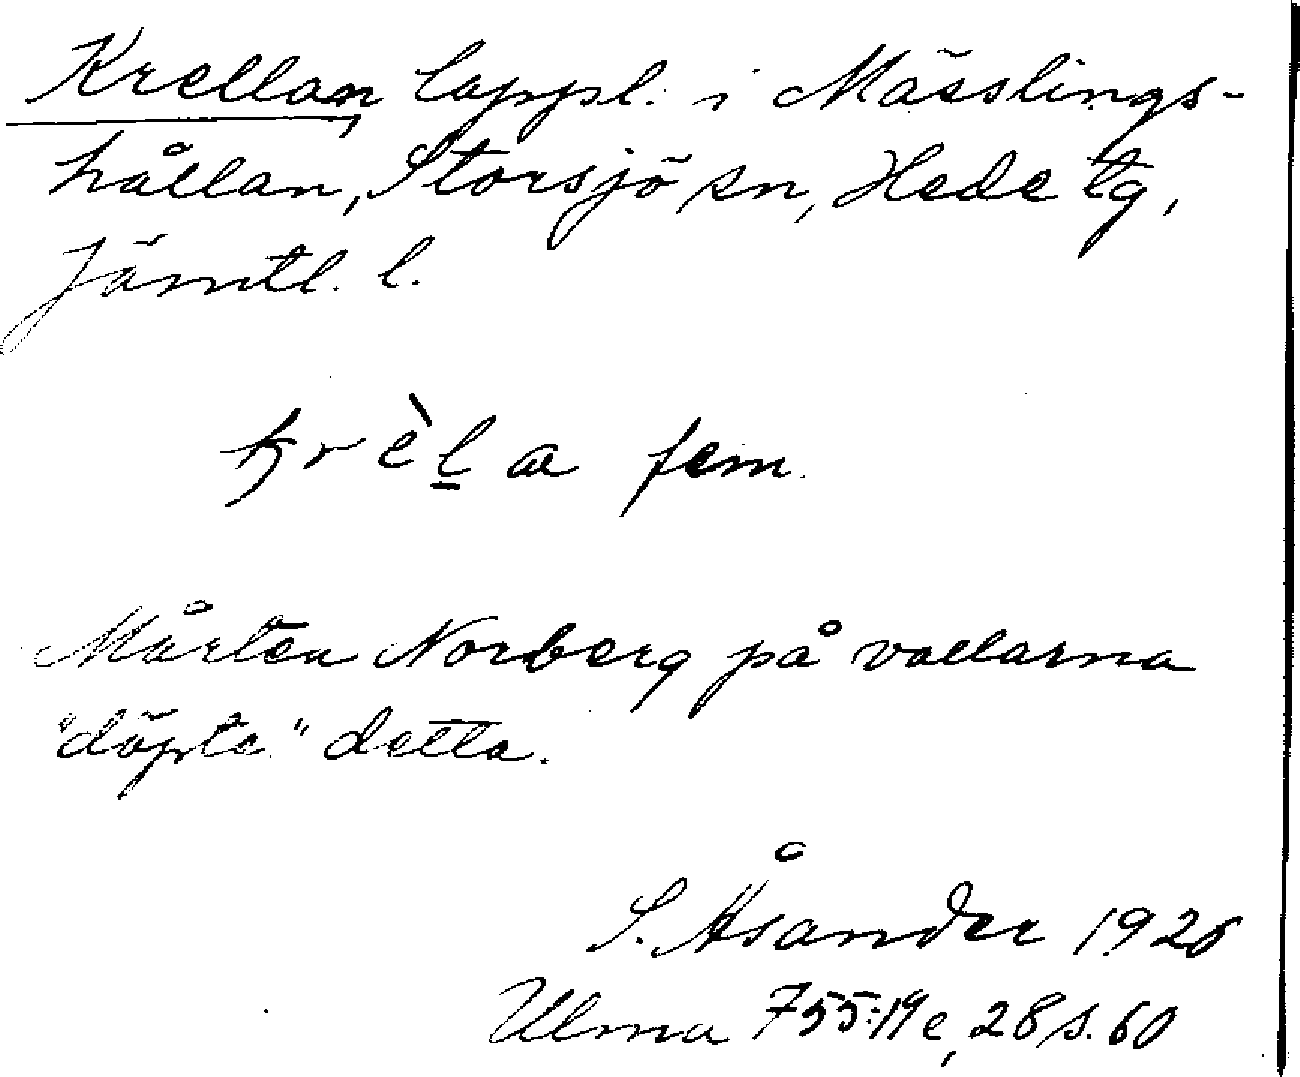 Krellan, lappl. i Mässlings-
hållan, Storsjö sn, Hede tg,
Jämtl. l.
krèla fem.
Mårten Norberg på vallarna
"döpte" detta.
S. Åsander 1926
Ulma 755:19e, 28 s. 60